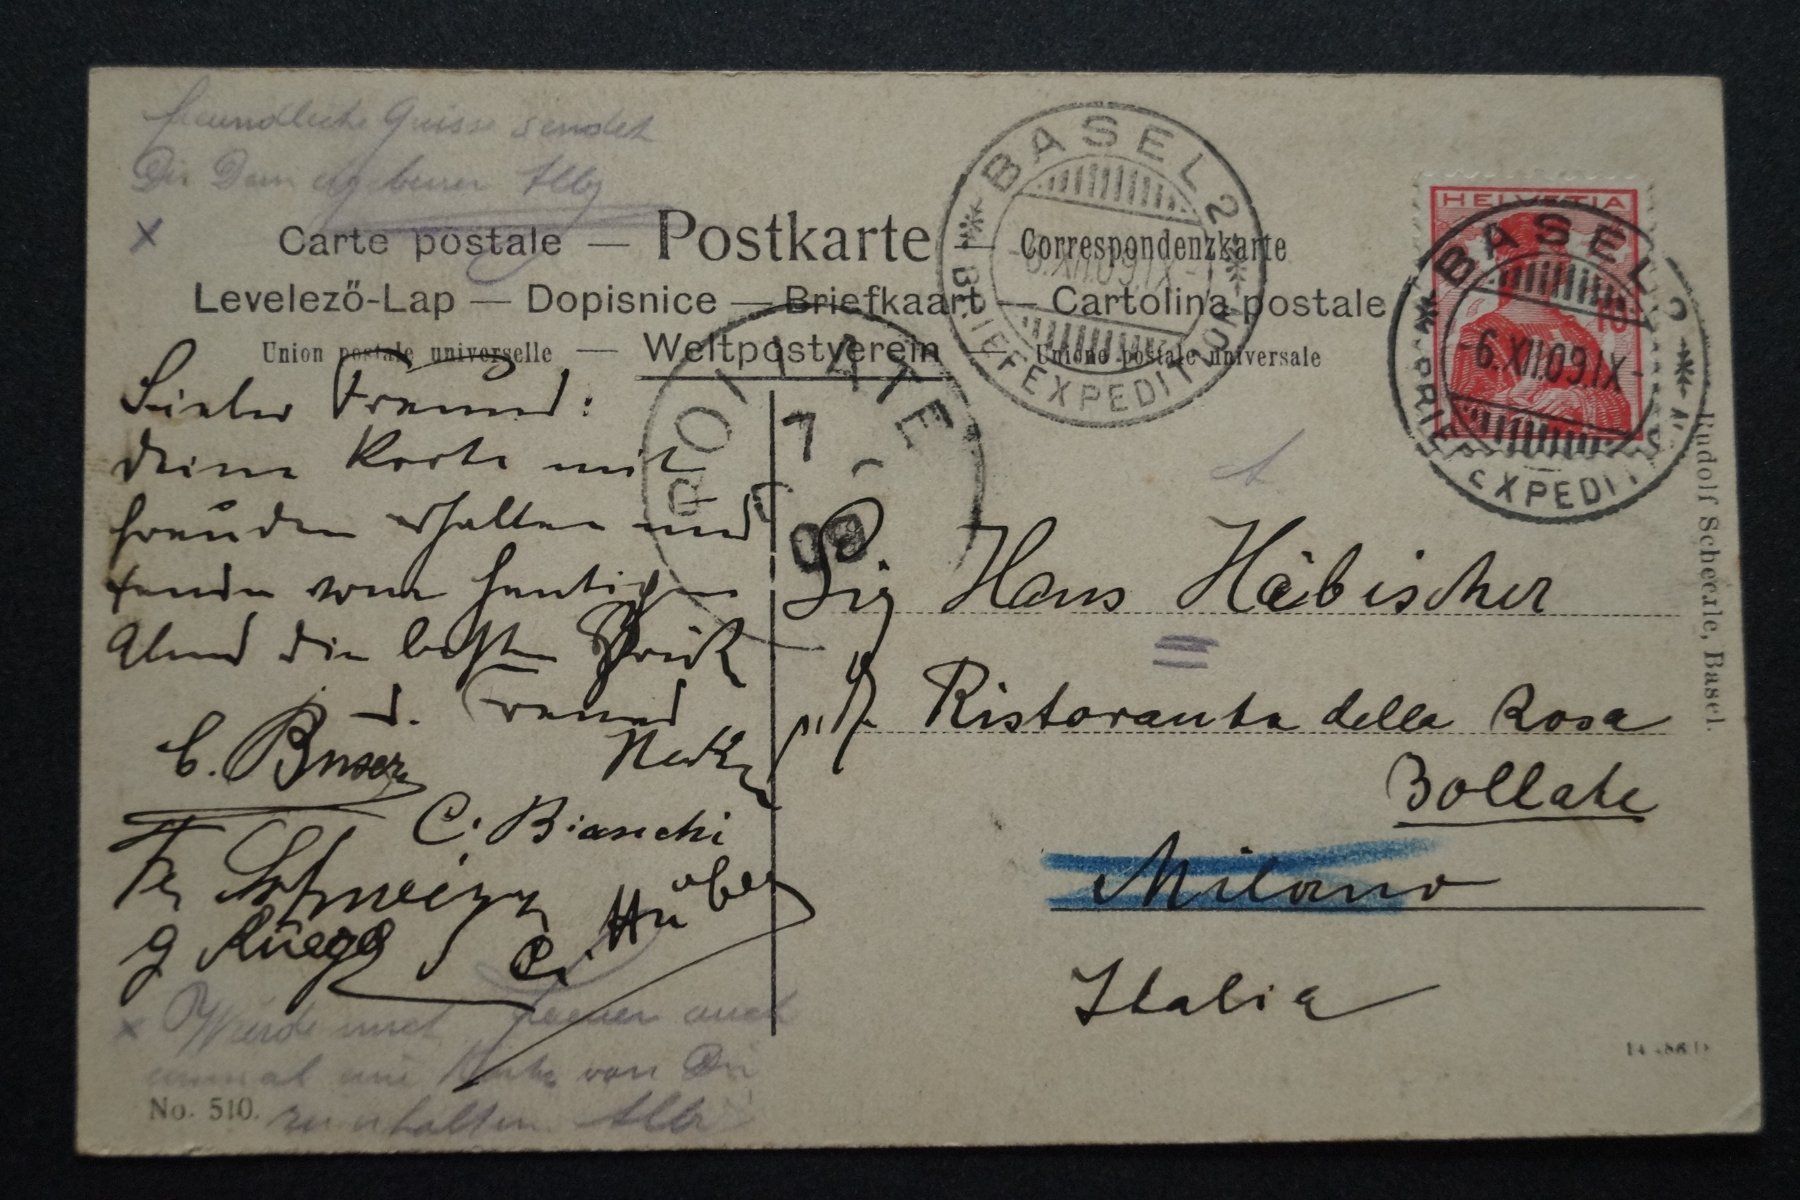 freundliche Grüsse sendet
Dir Dein ergebener Alb
x
Carte postale — Postkarte — Correspondenzkarte
Levelező-Lap — Dopisnice — Briefkaart — Cartolina postale
Union postale universelle — Weltpostverein — Unione postale universale
BASEL 2
-6.XII.09.IX-
BRIEFEXPEDITION
HELVETIA
10
BASEL 2
-6.XII.09.IX-
BRIEFEXPEDIT
7
09
Lieber Freund:
deine Karte mit
freuden erhalten und
sende vom heutigen
Abend die besten
d. Freund
C. Buser
C. Bianchi
Fr. Schweizer
G Rüegg
C. Huber
x Würde mich freuen auch
einmal eine Karte von Dir
zu erhalten Alb
Sig Hans Häbischer
Ristorante della Rosa
Bollate
Milano
Italia
Rudolf Schecale, Basel.
No. 510.